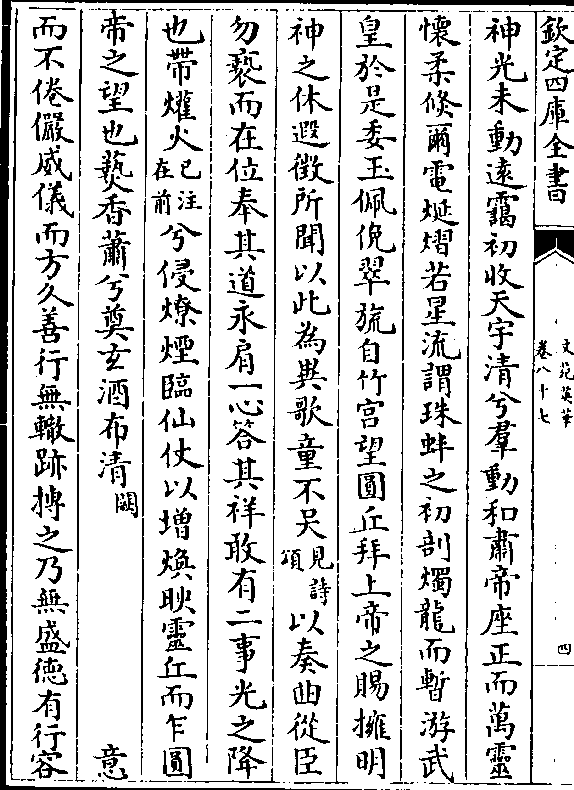 欽定四庫全書
文苑英華
卷八十七
四
神光未動遠靄初收天宇清兮羣動和肅帝座正而萬靈
懷柔倐爾電烻熠若星流謂珠蚌之初剖燭龍而暫游武
皇於是委玉佩俛翠旒自竹宫望圓丘拜上帝之賜擁明
神之休遐徴所聞以此為異歌童不吴見詩頌以奏曲從臣
勿褻而在位奉其道永肩一心答其祥敢有二事光之降
也帶爟火已注在前兮侵燎煙臨仙仗以増煥映靈丘而乍圓
帝之望也爇香蕭兮奠玄酒布清闕意
而不倦儼威儀而方久善行無轍跡摶之乃無盛徳有行容